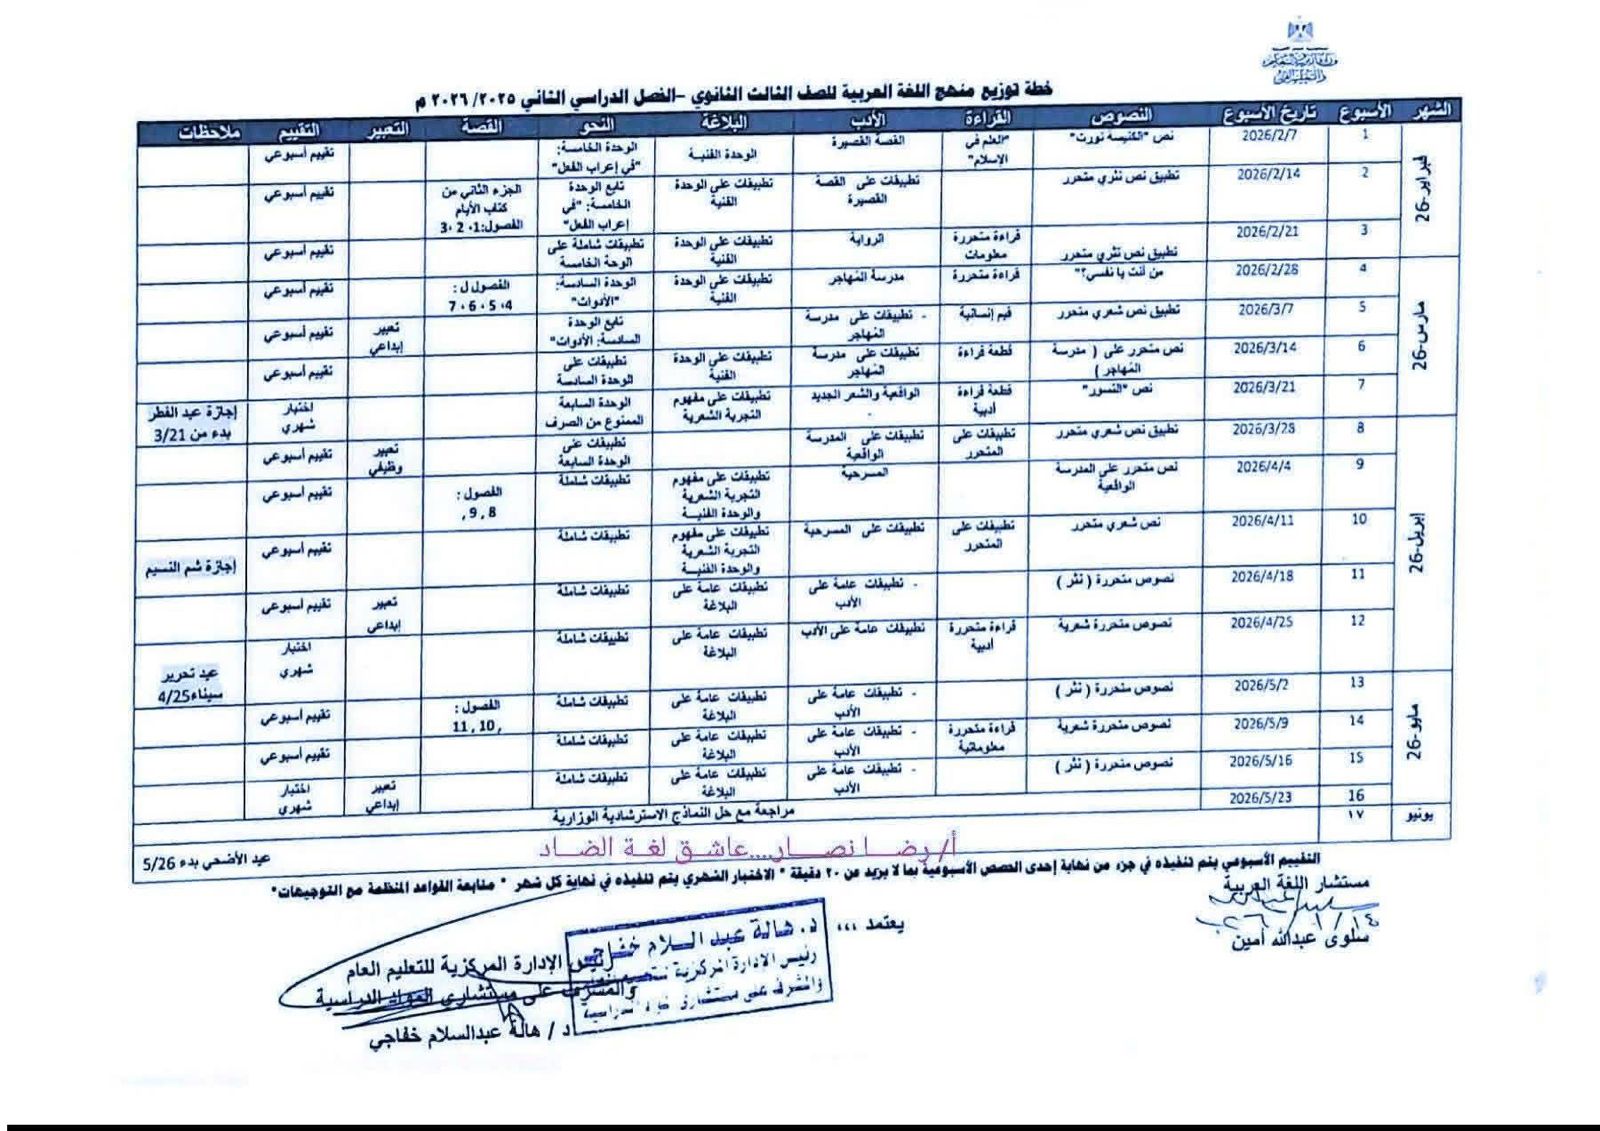 خطة توزيع منهج اللغة العربية للصف الثالث الثانوي –الفصل الدراسي الثاني ٢٠٢٥/ ٢٠٢٦ م
الشهر الأسبوع تاريخ الأسبوع النصوص القراءة الأدب البلاغة النحو القصة التعبير التقييم ملاحظات
فبراير-26
1 2026/2/7 نص "الكنيسة نورت" "العلم في الإسلام" القصة القصيرة الوحدة الفنية الوحدة الخامسة: "في إعراب الفعل" تقييم أسبوعي
2 2026/2/14 تطبيق نص نثري متحرر تطبيقات على القصة القصيرة تطبيقات على الوحدة الفنية تابع الوحدة الخامسة: "في إعراب الفعل" الجزء الثاني من كتاب الأيام الفصول:1، 2، 3 تقييم أسبوعي
3 2026/2/21 تطبيق نص نثري متحرر قراءة متحررة معلومات الرواية تطبيقات على الوحدة الفنية تطبيقات شاملة على الوحة الخامسة تقييم أسبوعي
مارس-26
4 2026/2/28 من أنت يا نفسي؟" قراءة متحررة مدرسة المهاجر تطبيقات على الوحدة الفنية الوحدة السادسة: "الأدوات" الفصول ل : 4، 5، 6، 7 تقييم أسبوعي
5 2026/3/7 تطبيق نص شعري متحرر قيم إنسانية - تطبيقات على مدرسة المهاجر تابع الوحدة السادسة: الأدوات" تعبير إبداعي تقييم أسبوعي
6 2026/3/14 نص متحرر على ( مدرسة المهاجر ) قطعة قراءة تطبيقات على مدرسة المهاجر تطبيقات على الوحدة الفنية تطبيقات على الوحدة السادسة تقييم أسبوعي
7 2026/3/21 نص "النسور" قطعة قراءة أدبية الواقعية والشعر الجديد تطبيقات على مفهوم التجربة الشعرية الوحدة السابعة الممنوع من الصرف اختبار شهري إجازة عيد الفطر بدء من 3/21
ابريل-26
8 2026/3/28 تطبيق نص شعري متحرر تطبيقات على المتحرر تطبيقات على المدرسة الواقعية تطبيقات على الوحدة السابعة تعبير وظيفي تقييم أسبوعي
9 2026/4/4 نص متحرر على المدرسة الواقعية المسرحية تطبيقات على مفهوم التجربة الشعرية والوحدة الفنية تطبيقات شاملة الفصول : 8 , 9 , تقييم أسبوعي
10 2026/4/11 نص شعري متحرر تطبيقات على المتحرر تطبيقات على المسرحية تطبيقات على مفهوم التجربة الشعرية والوحدة الفنية تطبيقات شاملة تقييم أسبوعي إجازة شم النسيم
11 2026/4/18 نصوص متحررة ( نثر ) - تطبيقات عامة على الأدب تطبيقات عامة على البلاغة تطبيقات شاملة تعبير إبداعي تقييم أسبوعي
12 2026/4/25 نصوص متحررة شعرية قراءة متحررة أدبية تطبيقات عامة على الأدب تطبيقات عامة على البلاغة تطبيقات شاملة اختبار شهري عيد تحرير سيناء4/25
مايو-26
13 2026/5/2 نصوص متحررة ( نثر ) - تطبيقات عامة على الأدب تطبيقات عامة على البلاغة تطبيقات شاملة الفصول : , 10 , 11 تقييم أسبوعي
14 2026/5/9 نصوص متحررة شعرية قراءة متحررة معلوماتية - تطبيقات عامة على الأدب تطبيقات عامة على البلاغة تطبيقات شاملة تقييم أسبوعي
15 2026/5/16 نصوص متحررة ( نثر ) - تطبيقات عامة على الأدب تطبيقات عامة على البلاغة تطبيقات شاملة تعبير إبداعي اختبار شهري
16 2026/5/23
يونيو ١٧ مراجعة مع حل النماذج الاسترشادية الوزارية
عيد الأضحى بدء 5/26
أ/رضا نصار....عاشق لغة الضاد
التقييم الأسبوعي يتم تنفيذه في جزء من نهاية إحدى الحصص الأسبوعية بما لا يزيد عن ٢٠ دقيقة * الاختبار الشهري يتم تنفيذه في نهاية كل شهر * متابعة القواعد المنظمة مع التوجيهات*
مستشار اللغة العربية
سلوى عبدالله أمين
يعتمد ،،،
د. هالة عبد السلام خفاجي
رئيس الإدارة المركزية
والمشرف على مستشاري المواد الدراسية
رئيس الإدارة المركزية للتعليم العام
والمشرف على مستشاري المواد الدراسية
د / هالة عبدالسلام خفاجي